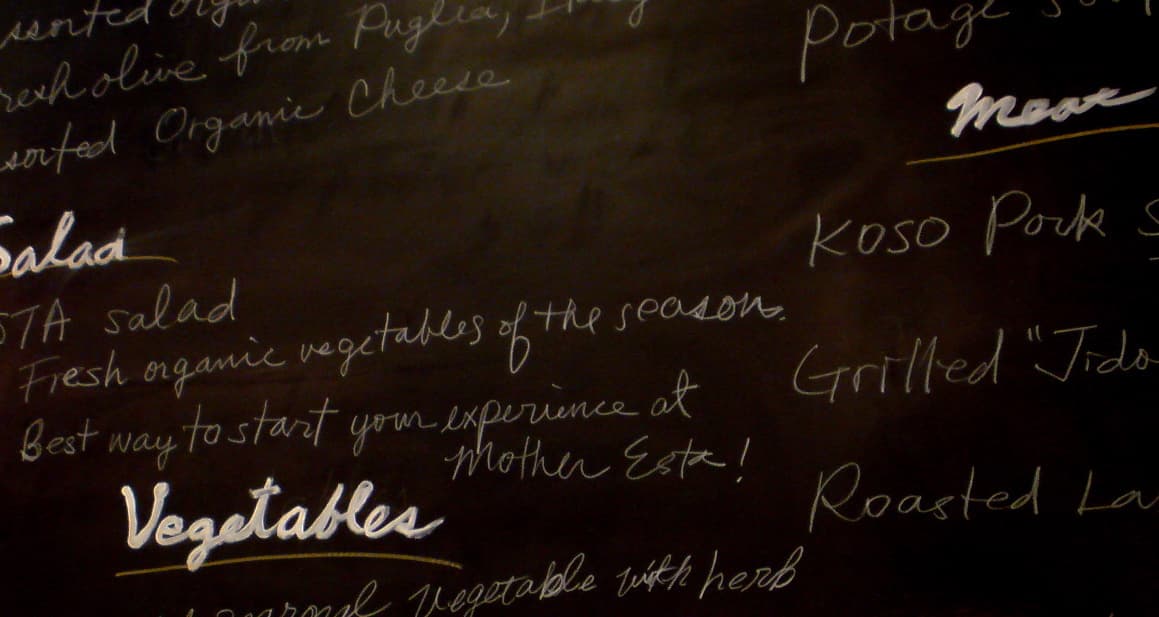 ssorted
resh olive from Puglia, Italy
sorted Organic Cheese
Salad
STA salad
Fresh organic vegetables of the season.
Best way to start your experience at
Mother Esta!
Vegetables
seasonal vegetable with herb
Potage
Meat
Koso Pork S
Grilled "Jido
Roasted La